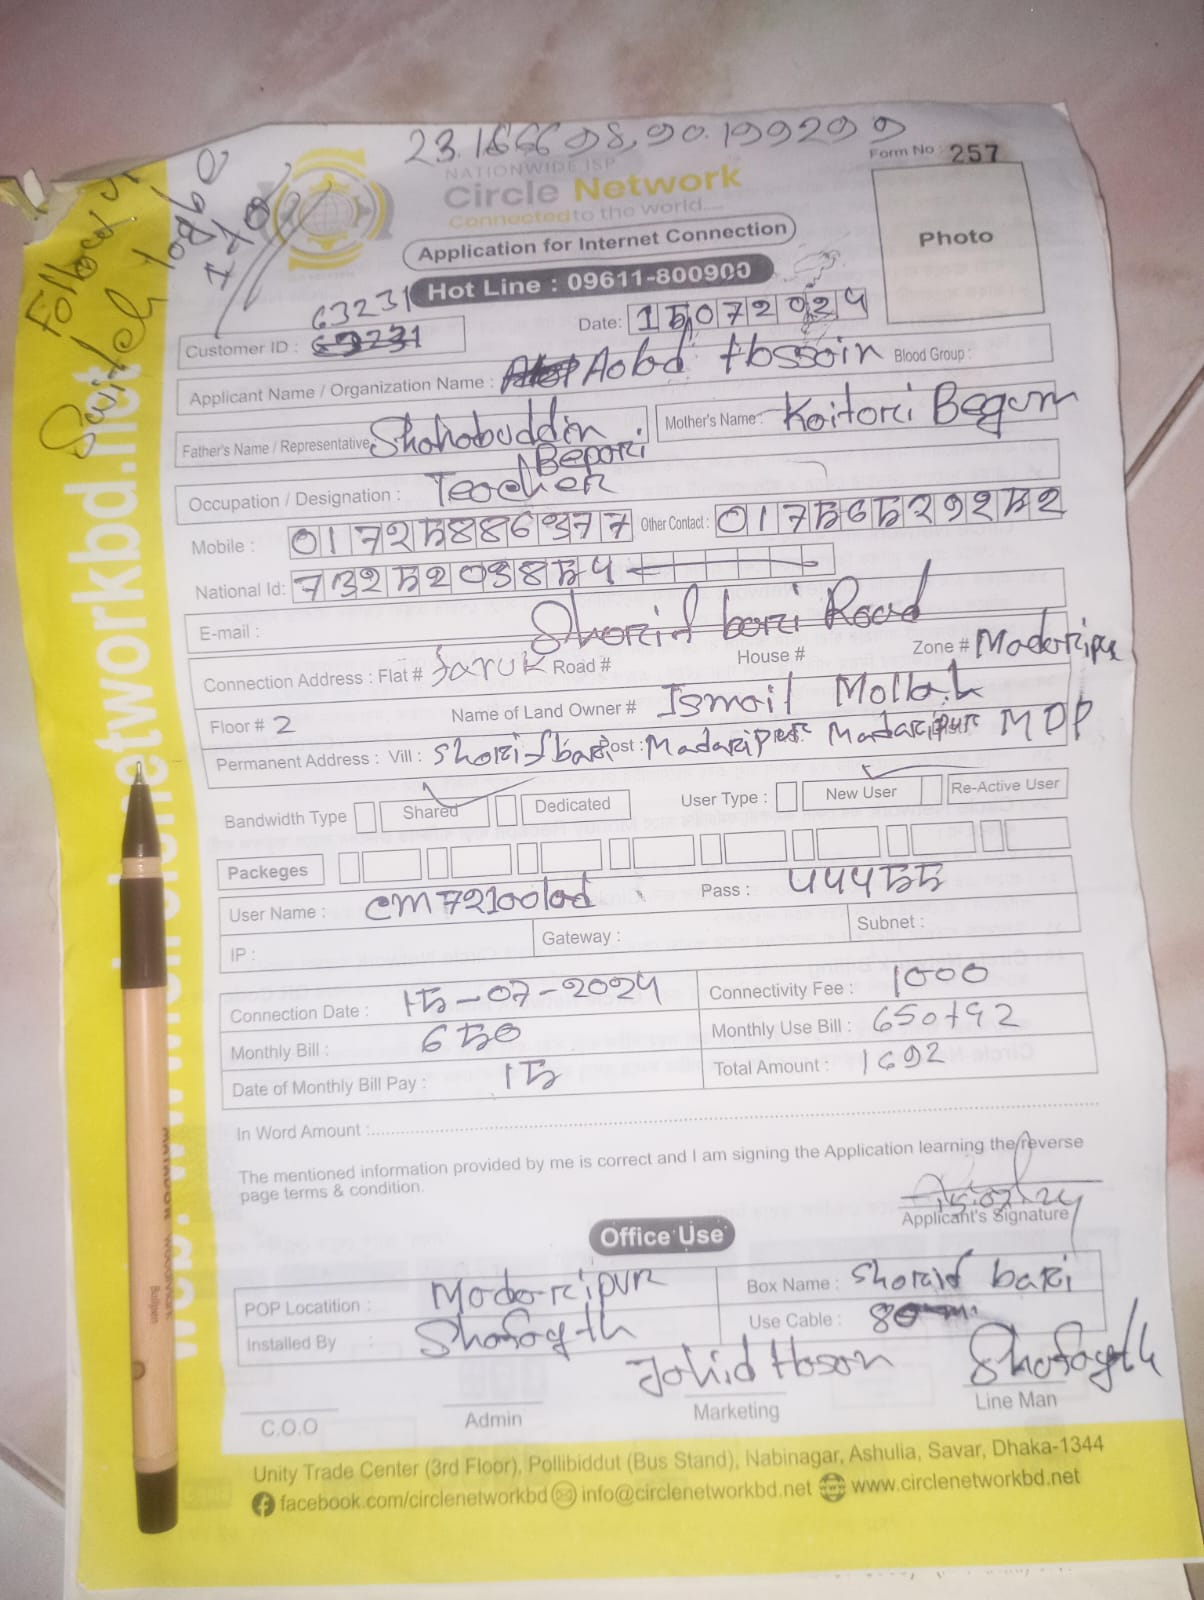 23.1666698,90.1992099
Form No : 257
NATIONWIDE ISP
Circle Network
Connected to the world....
Application for Internet Connection
Hot Line : 09611-800900
Photo
Follow up
Switch
63231
Customer ID : 69231
Date: 15072024
Applicant Name / Organization Name : Aobd Hossain Blood Group :
Father's Name / Representative Shahabuddin Bepari Mother's Name: Koitori Begum
Occupation / Designation : Teacher
Mobile : 01725886377 Other Contact : 01756529252
National Id: 7325203854
E-mail :
Shorif bari Road
Connection Address : Flat # Faruk Road # House # Zone # Madaripur
Floor # 2 Name of Land Owner # Ismail Mollah
Permanent Address : Vill : Shorifbari Post : Madaripur Madaripur MDP
Bandwidth Type Shared Dedicated User Type : New User Re-Active User
Packeges
User Name : Pass : 44455
IP : Gateway : Subnet :
Connection Date : 15-07-2024 Connectivity Fee : 1000
Monthly Bill : 650 Monthly Use Bill : 650+92
Date of Monthly Bill Pay : 15 Total Amount : 1692
In Word Amount :
The mentioned information provided by me is correct and I am signing the Application learning the reverse
page terms & condition.
15.07.24
Applicant's Signature
Office Use
POP Locatition : Madaripur Box Name : Shorif bari
Installed By : Shofayth Use Cable : 80 m
Johid Hoson Shofayth
C.O.O Admin Marketing Line Man
Unity Trade Center (3rd Floor), Pollibiddut (Bus Stand), Nabinagar, Ashulia, Savar, Dhaka-1344
facebook.com/circlenetworkbd info@circlenetworkbd.net www.circlenetworkbd.net